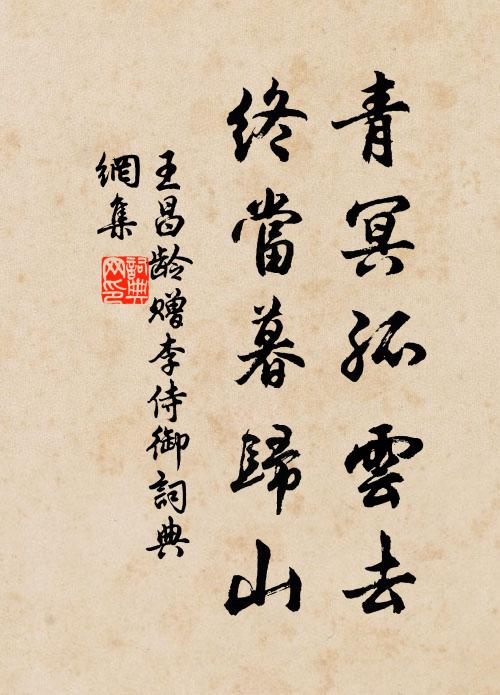 青冥孤雲去
終當暮歸山
王昌龄贈李侍御詞典
網集
詞典
网印